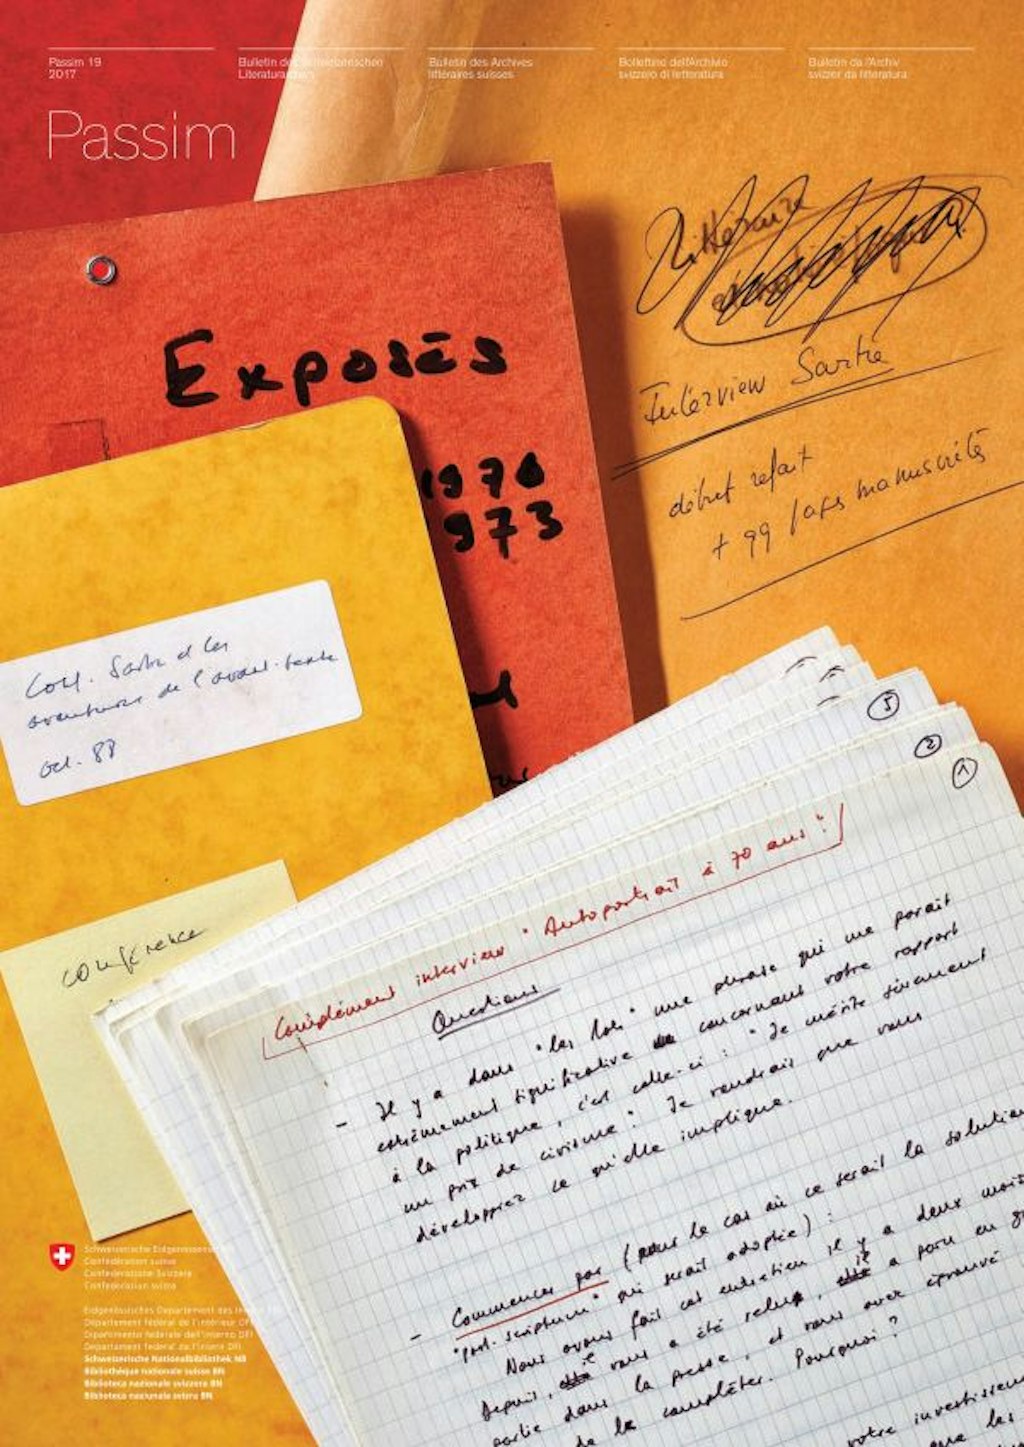 Passim 19
2017
Bulletin des Schweizerischen
Literaturarchivs
Bulletin des Archives
littéraires suisses
Bollettino dell'Archivio
svizzero di letteratura
Bulletin da l'Archiv
svizzer da litteratura
Passim
Littéraire
Exposés
1970
1973
Interview Sartre
début refait
+ 99 pages manuscrites
Coll. Sartre et les
aventures de l'avant-texte
oct. 88
conférence
3
2
1
Complément interview "Autoportrait à 70 ans"
Questions
- Il y a dans "les Mots" une phrase qui me paraît
extrêmement significative concernant votre rapport
à la politique, c'est celle-ci : "Je mérite sûrement
un prix de civisme". Je voudrais que vous
développiez ce qu'elle implique.
- Commencer par (pour le cas où ce serait la solution
"post-scriptum" qui serait adoptée) :
Nous avons fait cet entretien il y a deux mois
Depuis, il vous a été relu, il a paru en
partie dans la presse, et vous avez éprouvé
de le compléter. Pourquoi ?
votre investissement
que les
Schweizerische Eidgenossenschaft
Confédération suisse
Confederazione Svizzera
Confederaziun svizra
Eidgenössisches Departement des Innern EDI
Département fédéral de l'intérieur DFI
Dipartimento federale dell'interno DFI
Departament federal da l'intern DFI
Schweizerische Nationalbibliothek NB
Bibliothèque nationale suisse BN
Biblioteca nazionale svizzera BN
Biblioteca naziunala svizra BN